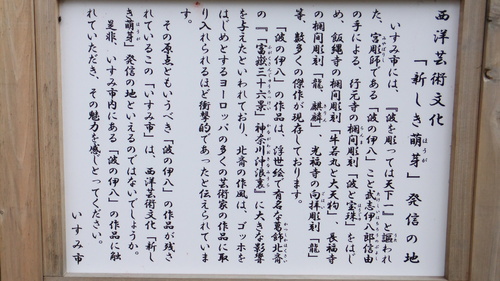 西洋芸術文化
「新しき萌芽」発信の地
ほうが
いすみ市には、『波を彫っては天下一』と謳われ
た、宮彫師である「波の伊八」こと武志伊八郎信由
の手による、行元寺の欄間彫刻「波と宝珠」をはじ
め、飯縄寺の欄間彫刻「牛若丸と大天狗」、長福寺
の欄間彫刻「龍、麒麟」、光福寺の向拝彫刻「龍」
等、数多くの傑作が現存しております。
「波の伊八」の作品は、浮世絵で有名な葛飾北斎
の『「富嶽三十六景」神奈川沖浪裏』に大きな影響
を与えたといわれており、北斎の作風は、ゴッホを
はじめとするヨーロッパの多くの芸術家の作品に取
り入れられるほど衝撃的であったと伝えられていま
す。
その原点ともいうべき「波の伊八」の作品が残さ
れているこの「いすみ市」は、西洋芸術文化「新し
き萌芽」発信の地といえるのではないでしょうか。
是非、いすみ市内にある「波の伊八」の作品に触
れていただき、その魅力を感じとってください。
いすみ市